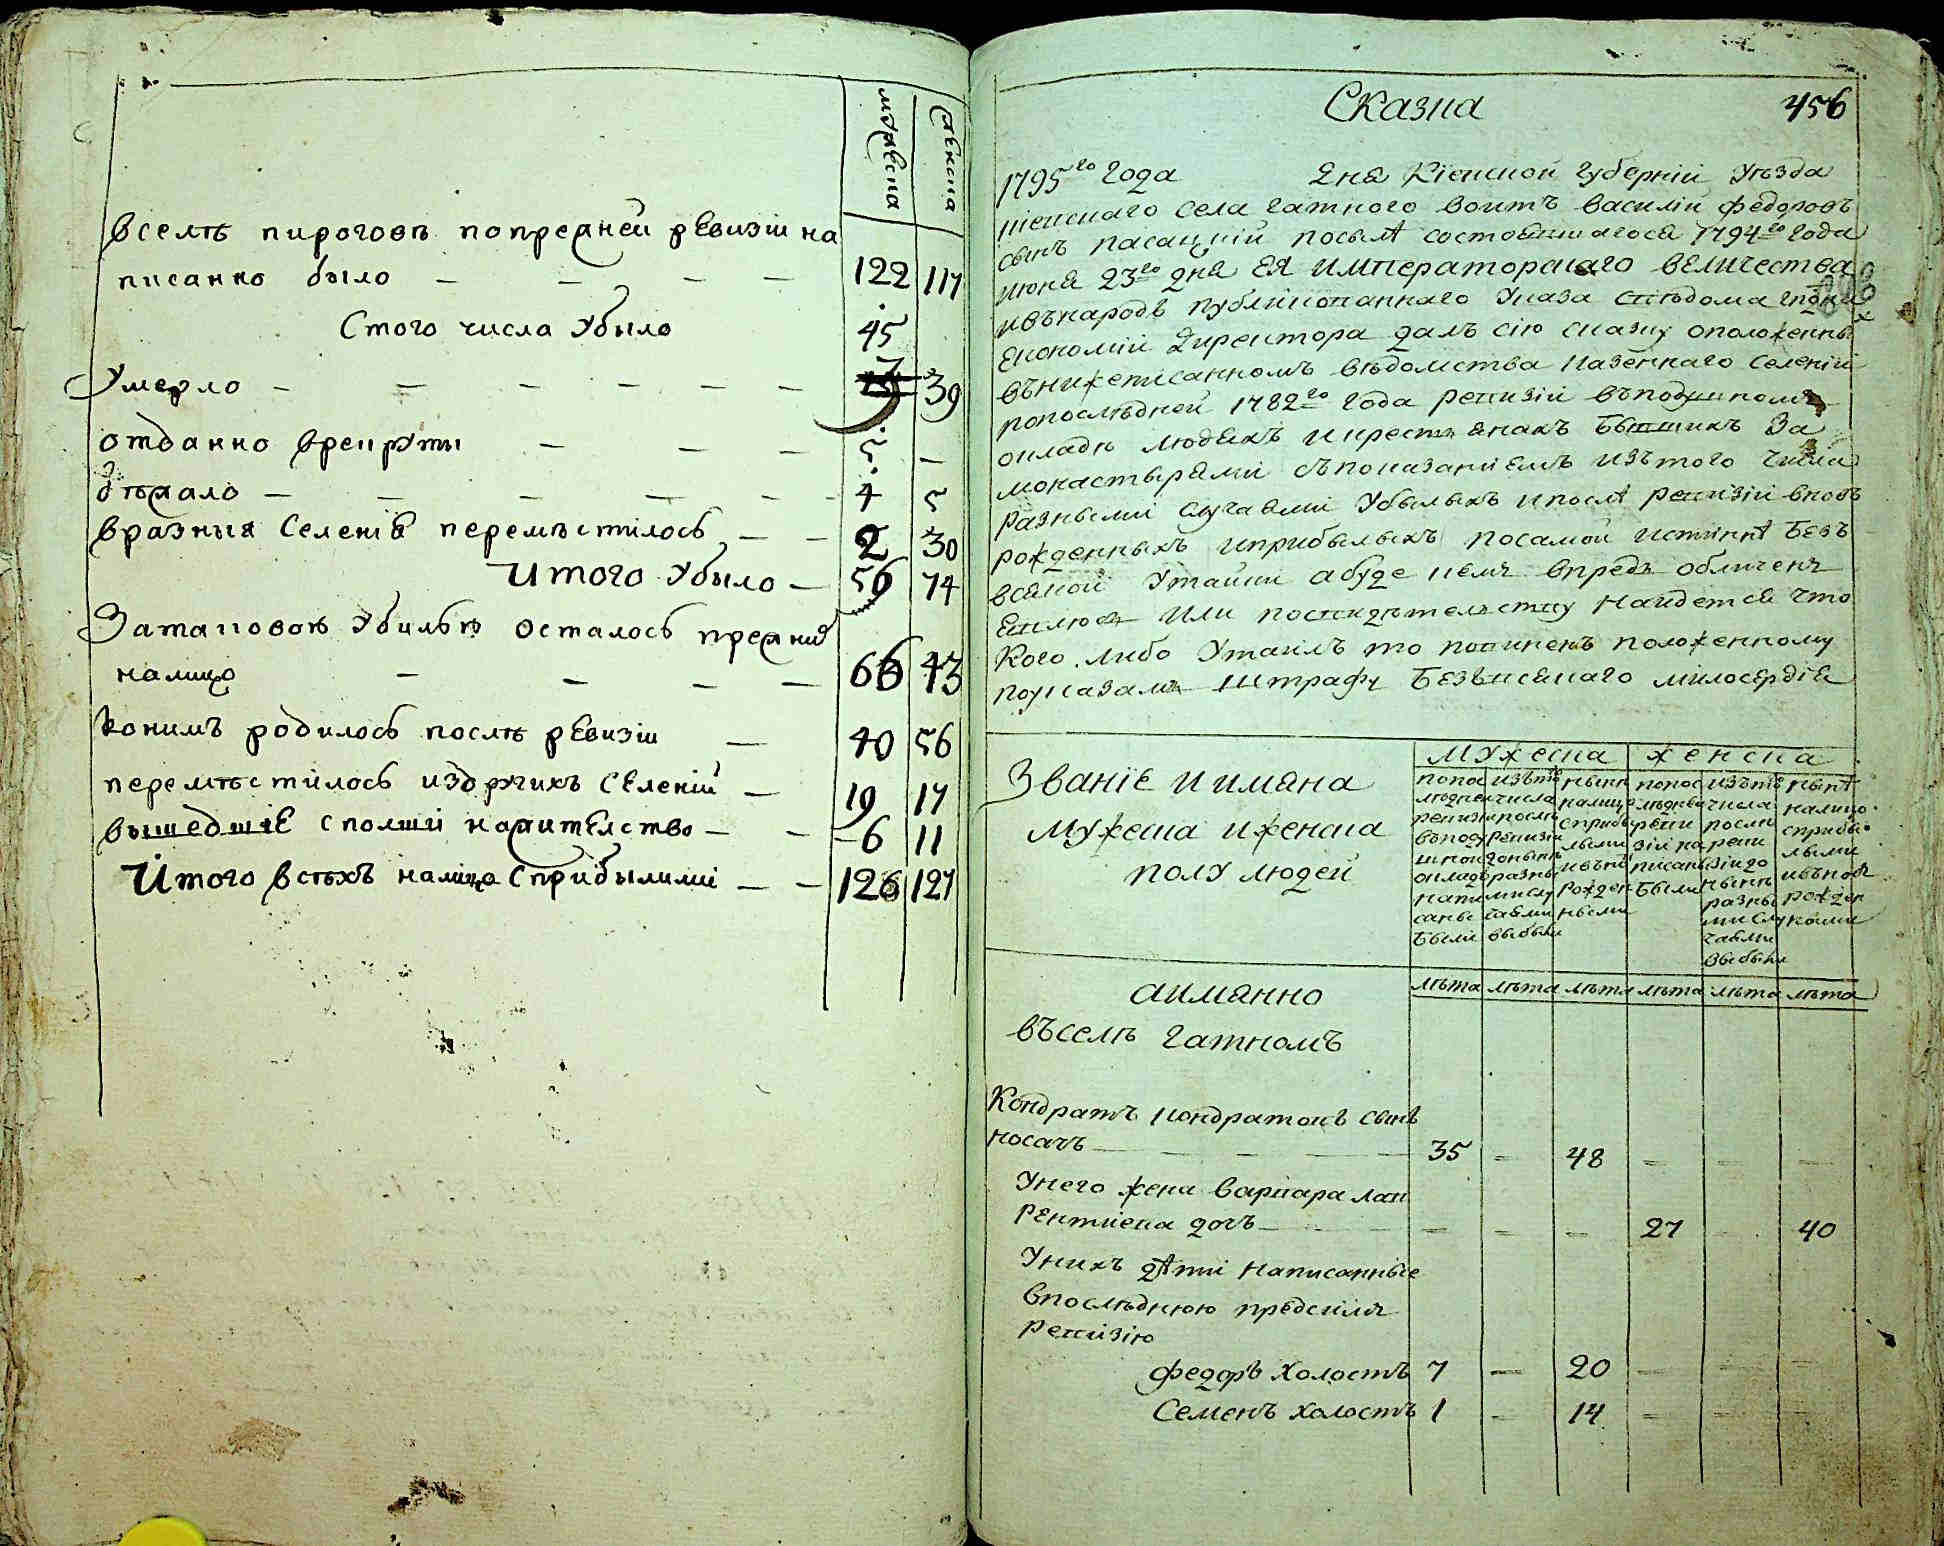 мужеска
женска
вселѣ пироговъ попрежней ревизіи на
писанно было — — — — 122 117
Стого числа убыло 45
умерло — — — — — — 39
отданно врекруты — — — 5 —
бѣжало — — — — — 4 5
вразныя селенія перемѣстилось — — 2 30
Итого убыло — 56 74
Затаковою убылью осталось прежнихъ
налицо — — — — 66 43
Конимъ родилось послѣ ревизіи — 40 56
перемѣстилось издругихъ селеній — 19 17
вышедшіе сполши нажителство — — 6 11
Итого всѣхъ налицо сприбылыми — — 126 127
Сказка 456
1795го года дня Кіевской губерніи уѣзда
кіевского села гатного воитъ василій федоровъ
сынъ пасацкій посилѣ состоявшагося 1794го года
июня 23го дня ея императорскаго величества
ивънародъ публикованнаго указа свѣдома гдна
економіи директора далъ сію сказку оположенныхъ
вънижеписанномъ вѣдомства казеннаго селеніи
попослѣдней 1782го года ревизіи въподушномъ
окладѣ людехъ икрестьянахъ бывшихъ за
монастырями съпоказаніемъ изътого числа
разными случаями убылыхъ ипослѣ ревизіи вновь
рожденныхъ иприбылыхъ посамой истиннѣ безъ
всякой утайки абуде кемъ впредь обличенъ
явлюсь или посвидѣтелству найдется что
кого либо утаилъ то повиненъ положенному
поуказамъ штрафу безъвсякаго милосердія
Званіе иимяна
мужеска иженска
полу людей
мужеска женска
попослѣдней ревизіи въподушной окладъ написанные были
изътого числа послѣ ревизіи донынѣ разными случаями выбыли
нынѣ налицо сприбылыми ивъновь рожденными
попослѣдней ревизіи написаны были
изътого числа послѣ ревизіи донынѣ разными случаями выбыли
нынѣ налицо сприбылыми ивъновь рожденными
лѣта лѣта лѣта лѣта лѣта лѣта
аимянно
въселѣ гатномъ
Кондратъ кондратовъ сынъ
носачъ — — — — 35 — 48 — — —
Унего жена варвара лав
рентиева дочь — — — — 27 — 40
Унихъ дѣти написанные
впослѣднюю предсимъ
ревизію
федоръ холостъ 7 — 20 — — —
Семенъ холостъ 1 — 14 — — —